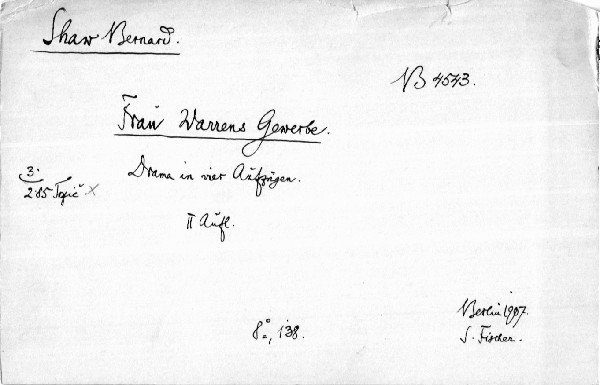 Shaw Bernard.
NB 4543.
Frau Warrens Gewerbe.
Drama in vier Aufzügen.
3.
285 Topič X
II Aufl.
8°, 138.
Berlin 1907.
S. Fischer.